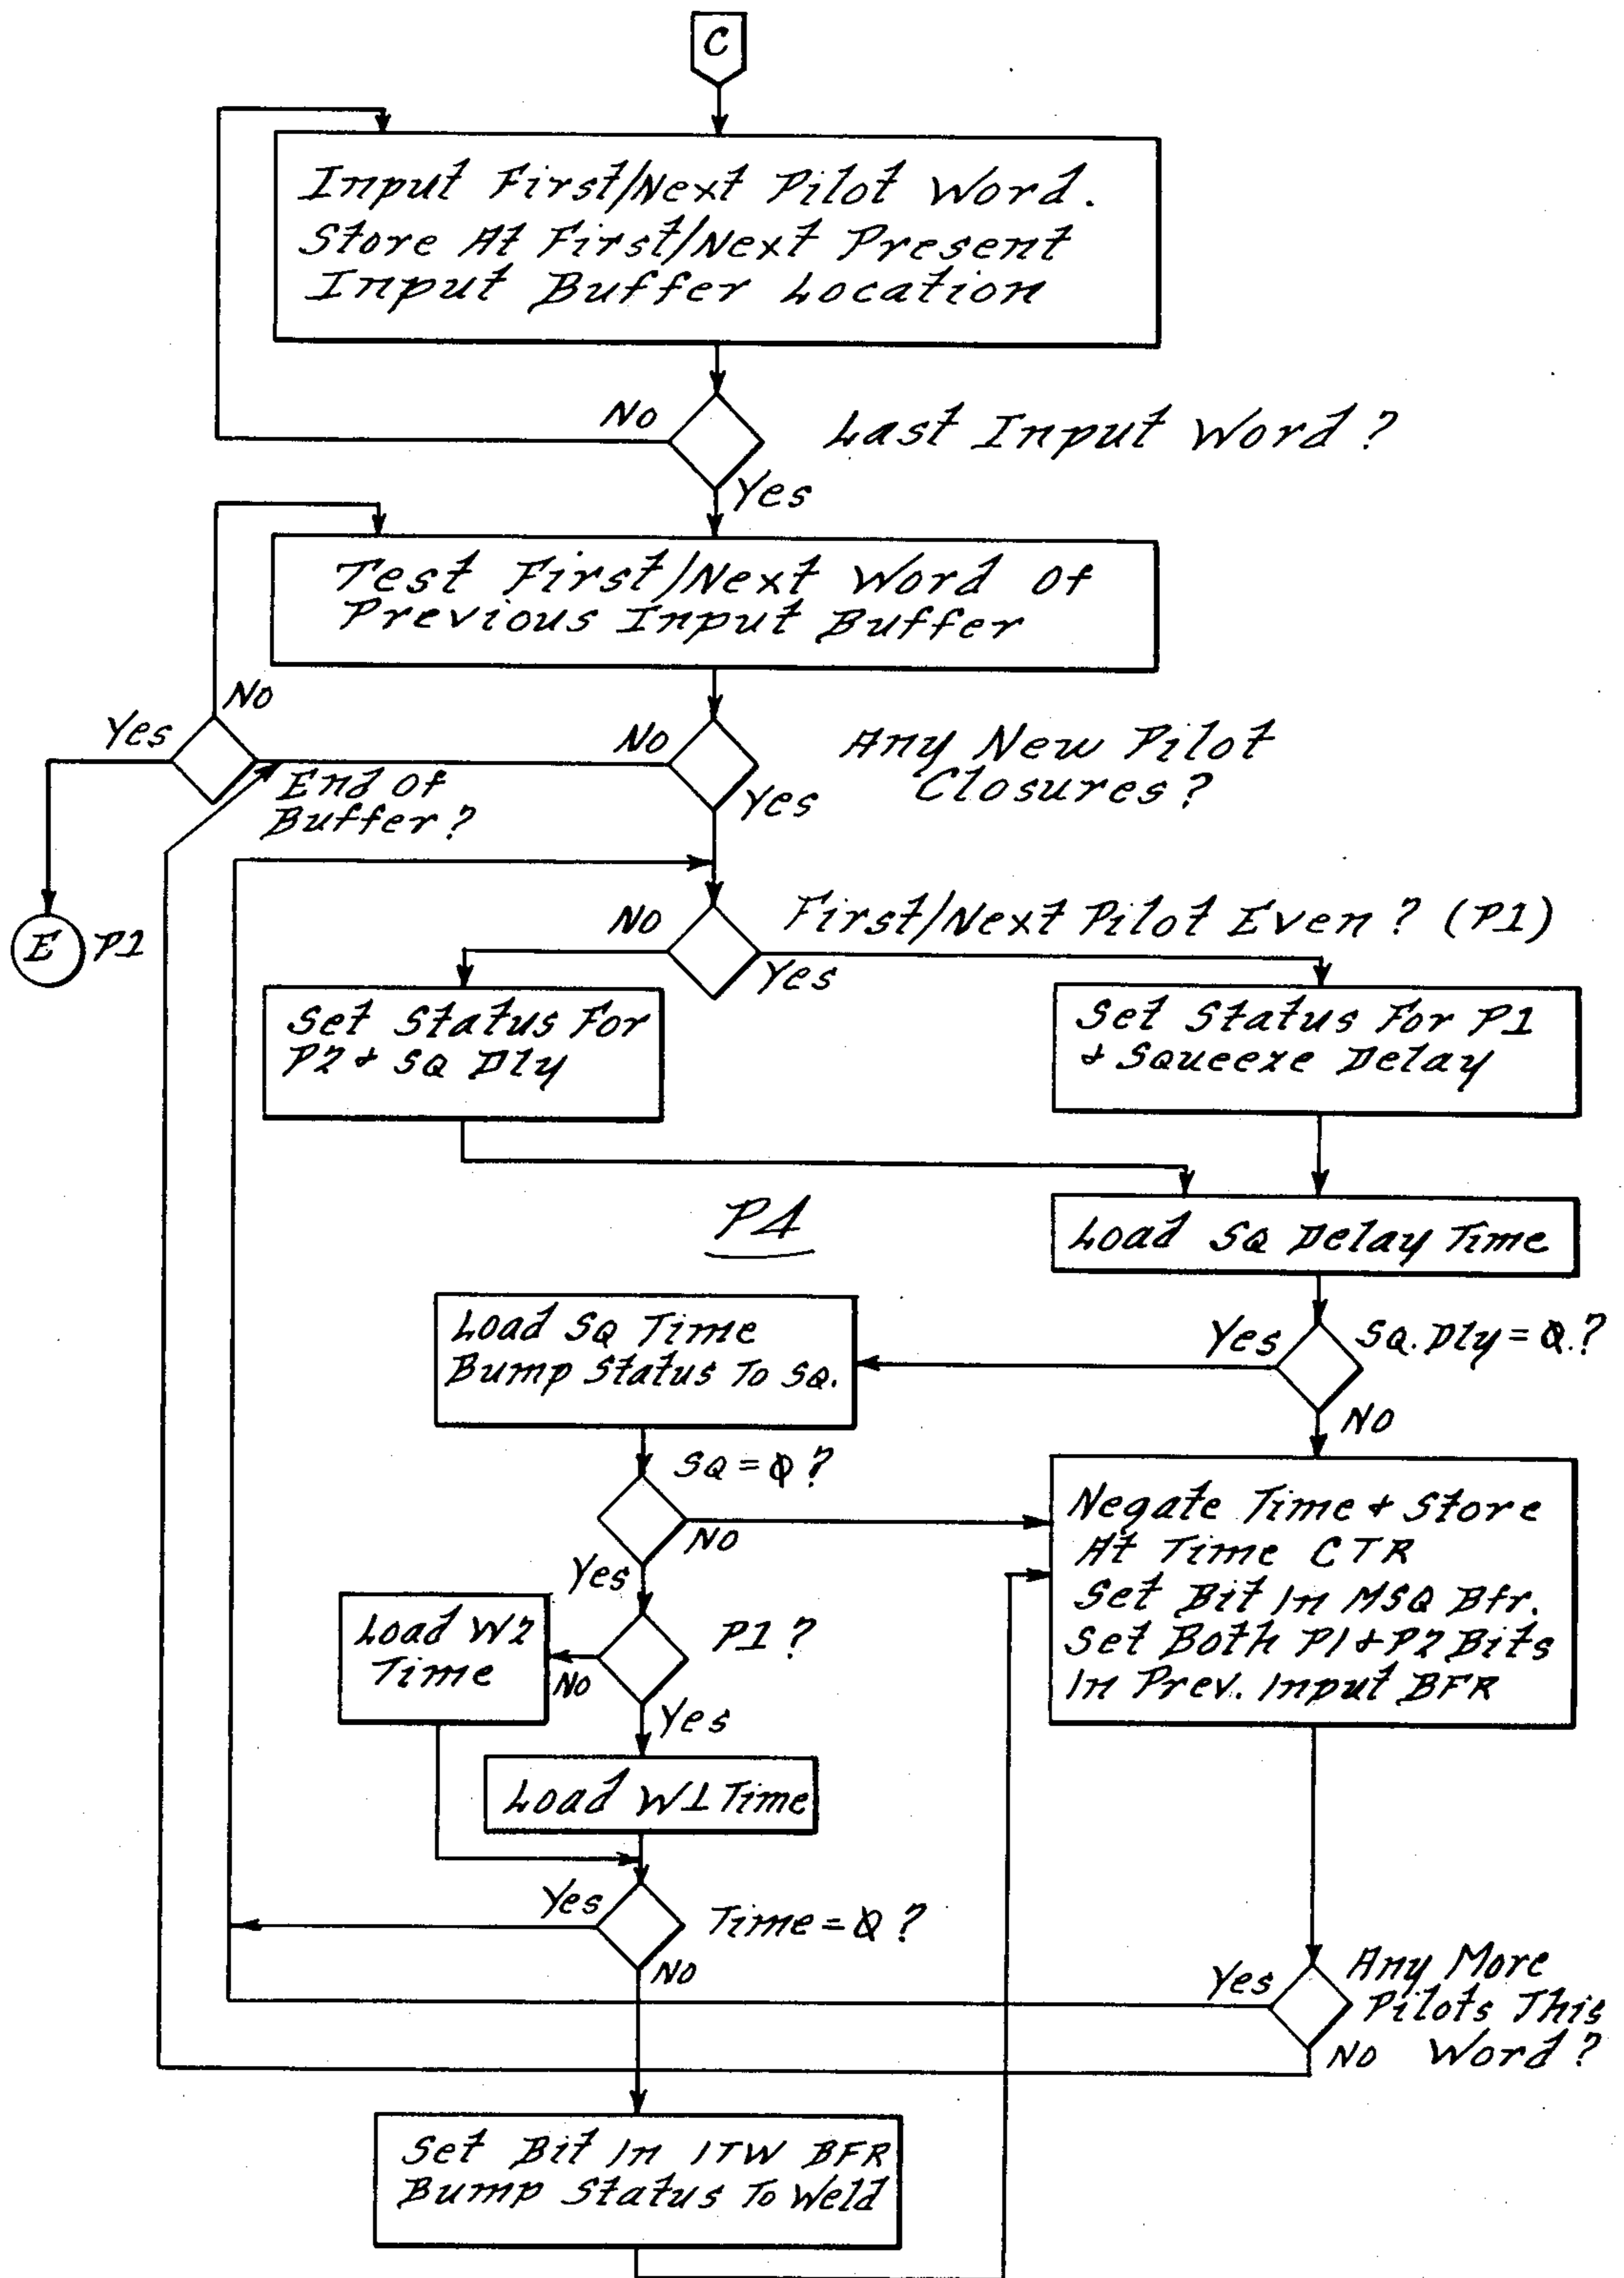 C
Input First/Next Pilot Word.
Store At First/Next Present
Input Buffer Location
No
Last Input Word?
Yes
Test First/Next Word Of
Previous Input Buffer
No
Yes
No
Any New Pilot
Closures?
Yes
End Of
Buffer?
E
P1
No
First/Next Pilot Even? (P1)
Yes
Set Status For
P2 & SQ Dly
Set Status For P1
& Squeeze Delay
P4
Load SQ Delay Time
Load SQ Time
Bump Status To SQ.
Yes
SQ. Dly = 0.?
No
SQ = 0?
No
Yes
Negate Time & Store
At Time CTR
Set Bit In MSQ Bfr.
Set Both P1 & P2 Bits
In Prev. Input BFR
Load W2
Time
No
P1?
Yes
Load W1 Time
Yes
Time = 0?
No
Yes
Any More
Pilots This
Word?
No
Set Bit In ITW BFR
Bump Status To Weld